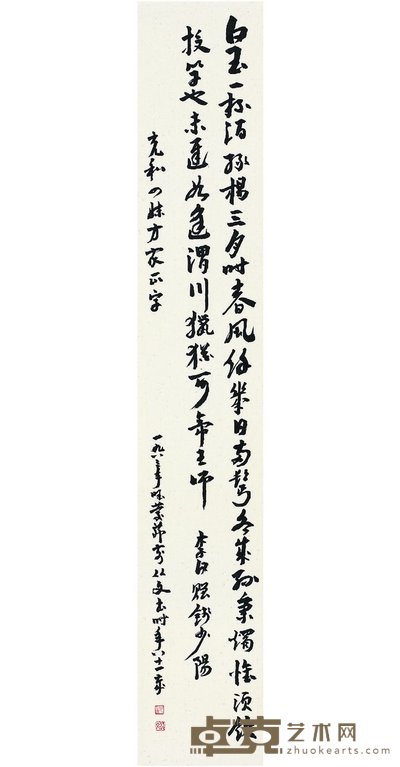 白玉一杯酒绿杨三月时春风余几日两鬓各成丝秉烛惟须饮
投竿也未迟如逢渭川猎犹可帝王师 李白赠钱少阳
充和四妹方家正字
一九八三年 从文书时年八十一岁
卓克艺术网
zhuokearts.com